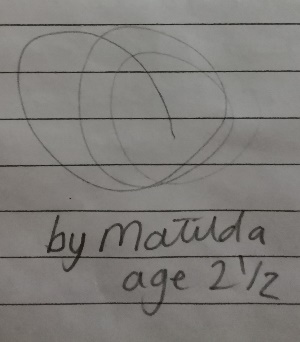 by Matilda
age 2 1/2